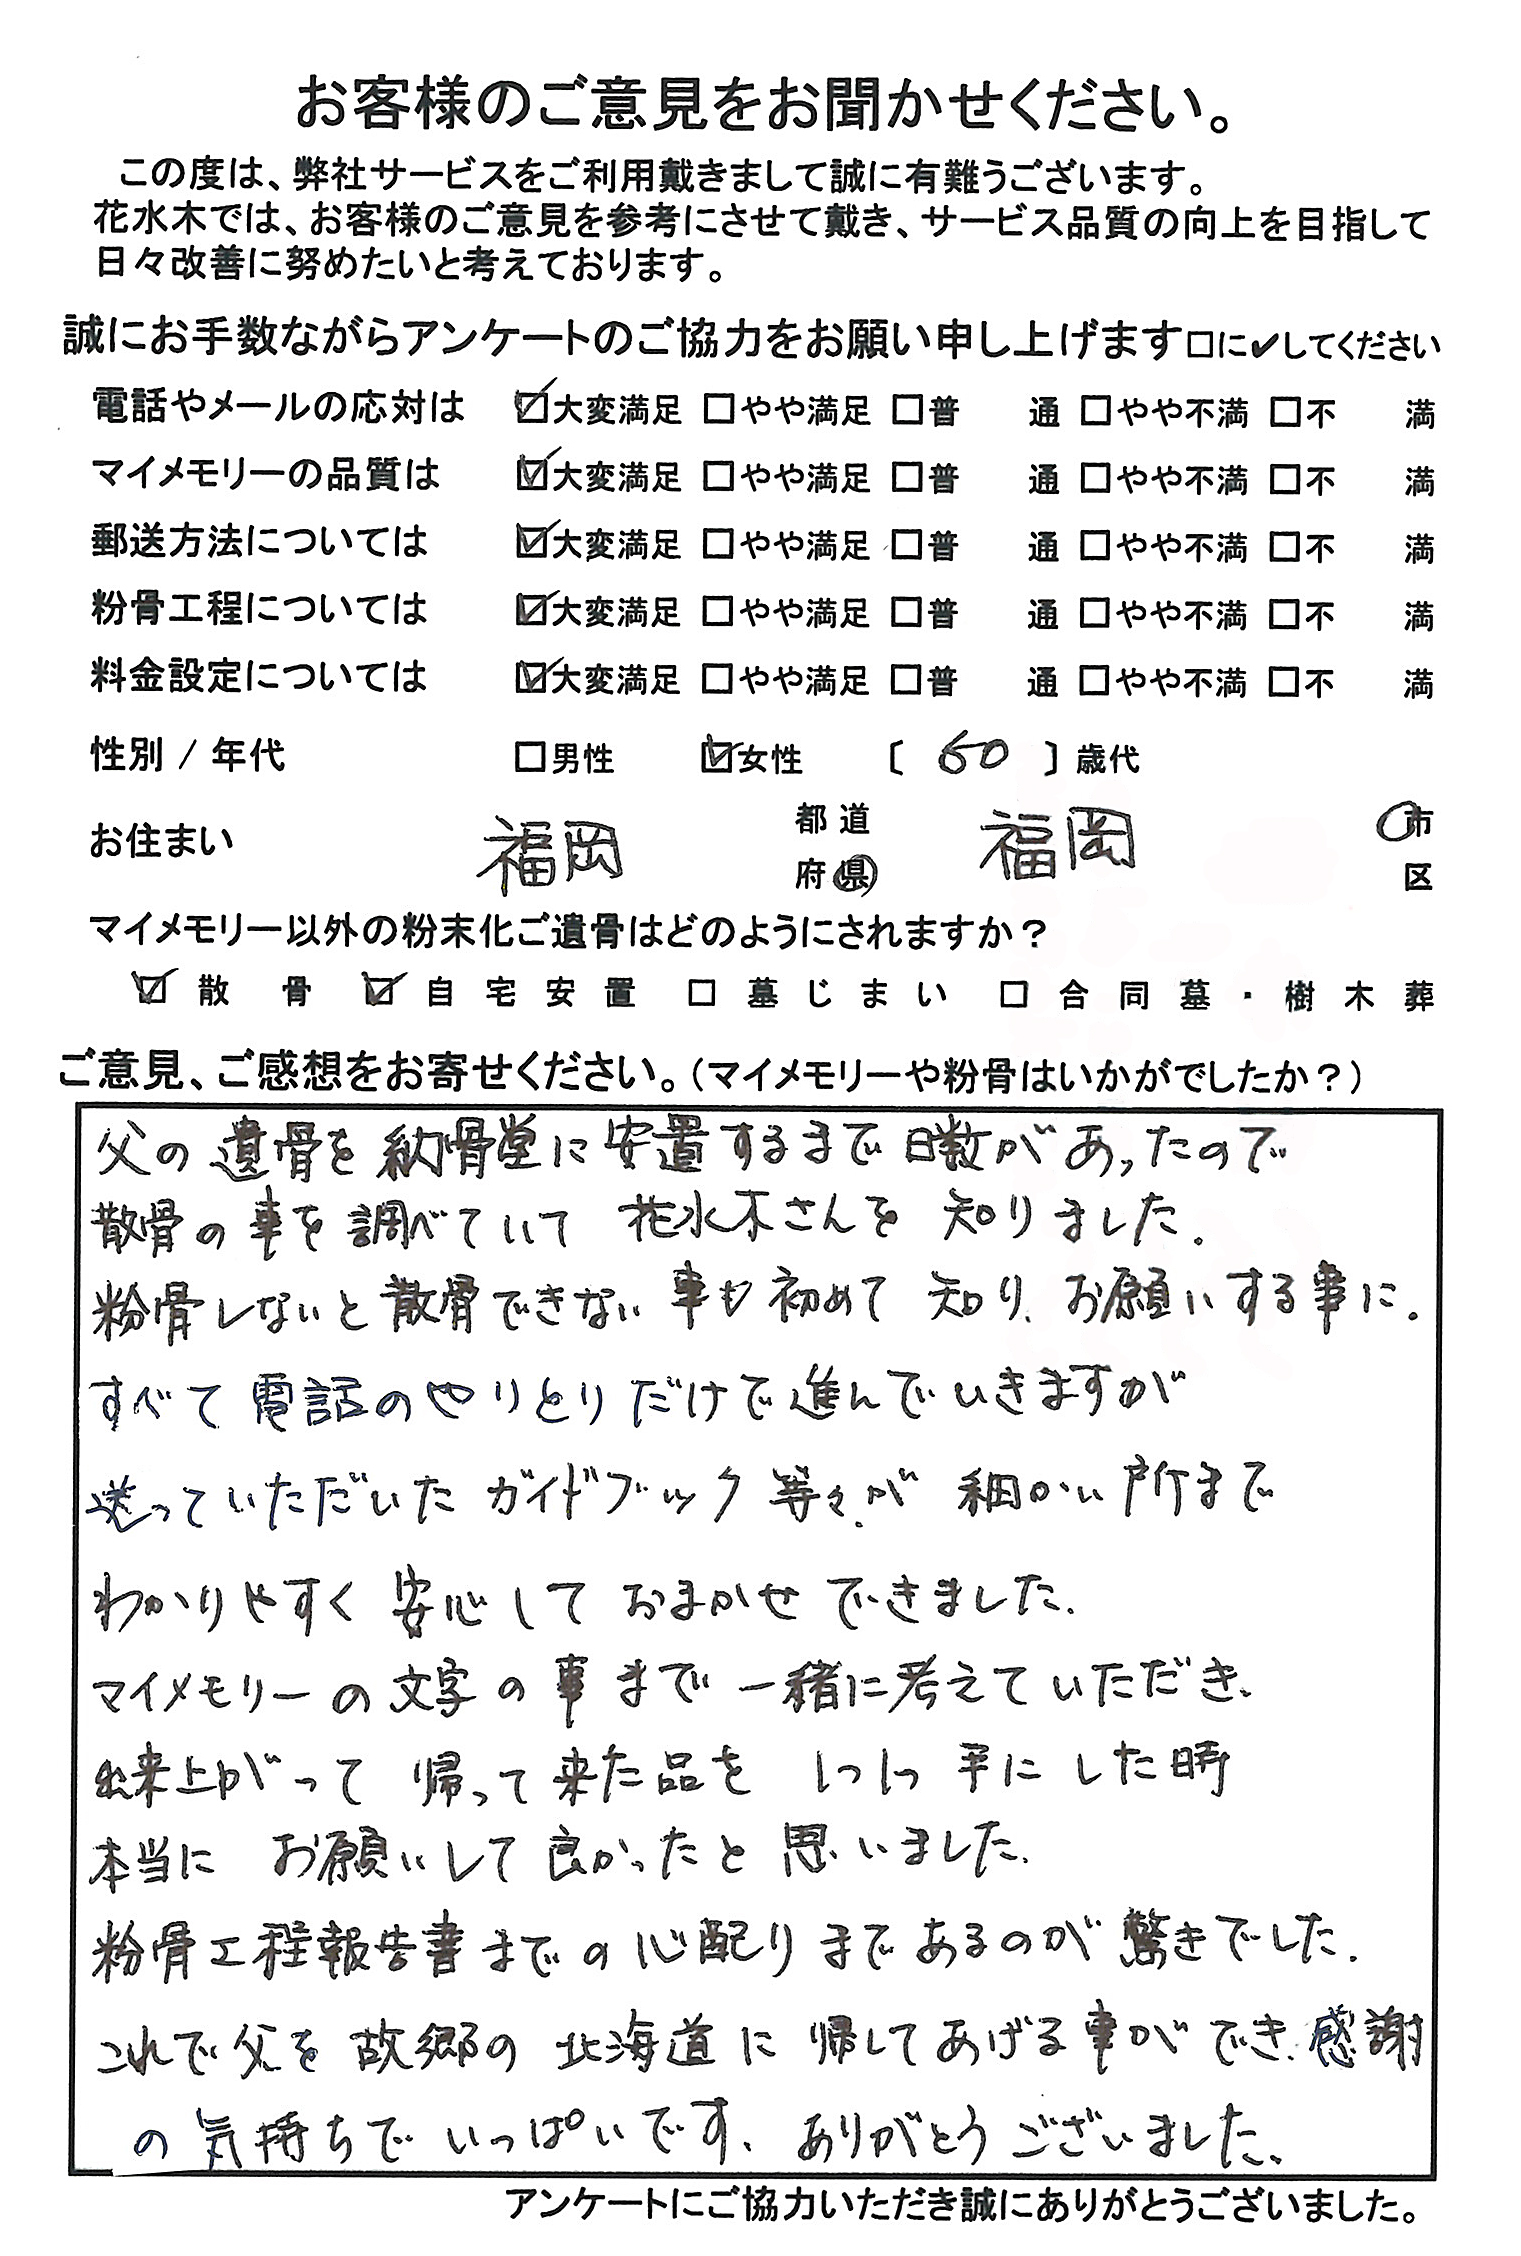 お客様のご意見をお聞かせください。
この度は、弊社サービスをご利用戴きまして誠に有難うございます。
花水木では、お客様のご意見を参考にさせて戴き、サービス品質の向上を目指して
日々改善に努めたいと考えております。
誠にお手数ながらアンケートのご協力をお願い申し上げます□に✔してください
電話やメールの応対は ☑大変満足 □やや満足 □普 通 □やや不満 □不 満
マイメモリーの品質は ☑大変満足 □やや満足 □普 通 □やや不満 □不 満
郵送方法については ☑大変満足 □やや満足 □普 通 □やや不満 □不 満
粉骨工程については ☑大変満足 □やや満足 □普 通 □やや不満 □不 満
料金設定については ☑大変満足 □やや満足 □普 通 □やや不満 □不 満
性別 / 年代 □男性 ☑女性 〔 〕歳代
お住まい 福岡 都道府県 福岡 市区
マイメモリー以外の粉末化ご遺骨はどのようにされますか？
☑ 散骨 ☑ 自宅安置 □ 墓じまい □ 合同墓・樹木葬
ご意見、ご感想をお寄せください。（マイメモリーや粉骨はいかがでしたか？）
父の遺骨を納骨堂に安置するまで日数があったので
散骨の事を調べていて 花水木さんを 知りました。
粉骨しないと散骨できない事も初めて 知り、お願いする事に。
すべて電話のやりとりだけで進んでいきますが
送っていただいた ガイドブック 等々が 細かい所まで
わかりやすく 安心して おまかせ できました。
マイメモリーの文字の事まで一緒に考えていただき、
出来上がって 帰って来た品を 1つ1つ 手にした時
本当に お願いして良かったと思いました。
粉骨工程報告書までの心配りまであるのが驚きでした。
これで父を故郷の北海道に帰してあげる事ができ、感謝
の気持ちでいっぱいです、ありがとうございました。
アンケートにご協力いただき誠にありがとうございました。